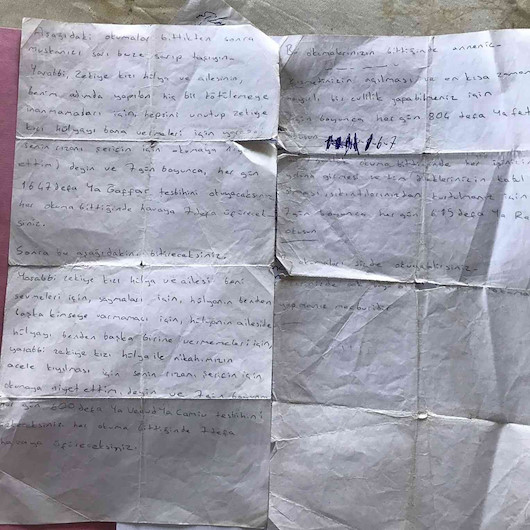 Aşağıdaki okumalar bittikten sonra
muskanızı sarı beze sarıp taşıyın.
Yarabbi, Zekiye kızı hülya ve ailesinin,
benim adımda yapılan hiç bir kötülemeye
inanmamaları için, hepsini unutup zekiye
kızı hülyayı bana vermeleri için
senin rızanı için için okumaya
ettim, deyin ve 7 gün boyunca, her gün
1647 defa Ya Gaffar tesbihini okuyacaksınız
her okuma bittiğinde havaya 7 defa üfürecek
siniz.
Sonra bu aşağıdakini bitireceksiniz.
Yarabbi zekiye kızı hülya ve ailesi beni
sevmeleri için, saymaları için, hülyanın benden
başka kimseye varmaması için, hülyanın aileside
hülyayı benden başka birine vermemeleri için,
yarabbi zekiye kızı hülya ile nikahımızın
acele kıyılması için senin rızanı için için,
okumaya niyet ettim, deyin ve 7 gün boyunca
her gün 620 defa Ya Vedud Ya Camiu tesbihini
her okuma bittiğinde 7 defa
havaya üfüreceksiniz.
Bu okumalarınızın bittiğinde anneniz
kısmetinizin açılması ve en kısa zamanda
hayırlı bir evlilik yapabilmeniz için
gün boyunca her gün 804 defa Ya fettah
okusun
6-7
okuma bittiğinde her
girmesi ve tüm dileklerinizin kabul
sıkıntılarınızdan kurtulmanız için
7 gün boyunca her gün 615 defa Ya
okusun
sizde
yapmanız mecburidir